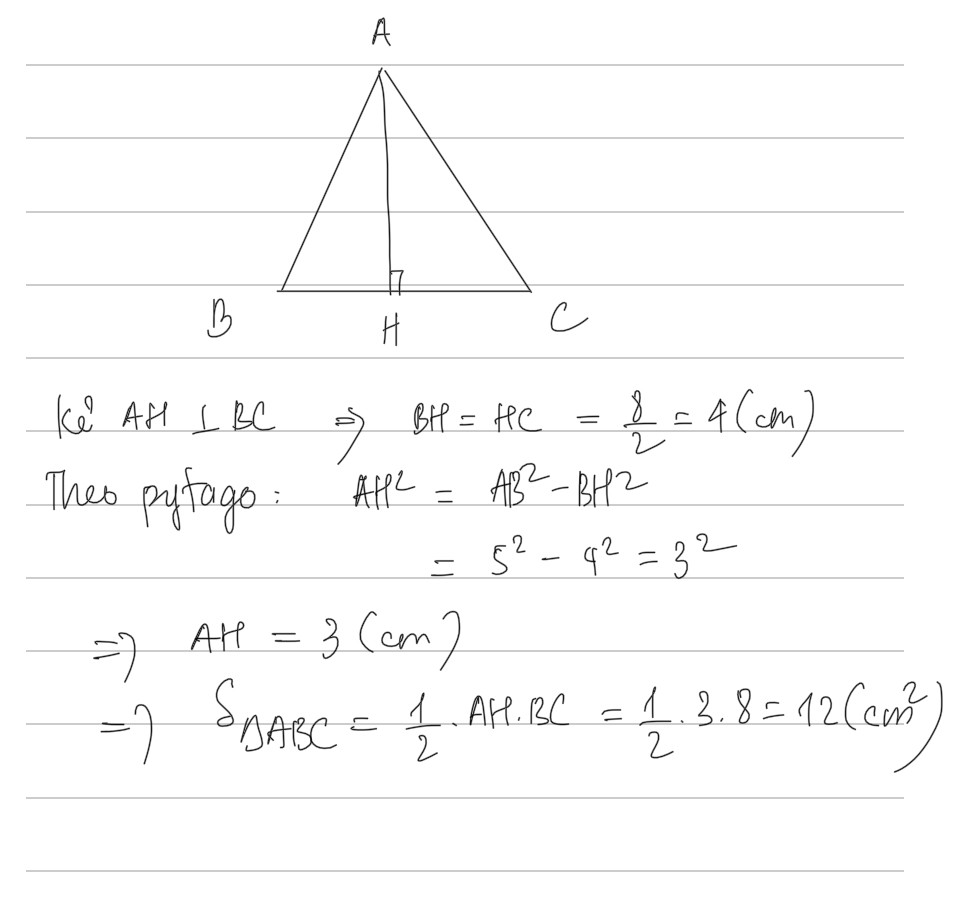 A
B
H
C
Kẻ AH ⊥ BC => BH = HC = 8/2 = 4 (cm)
Theo pytago : AH² = AB² - BH²
= 5² - 4² = 3²
=> AH = 3 (cm)
=> SΔABC = 1/2 . AH.BC = 1/2 . 3 . 8 = 12 (cm²)